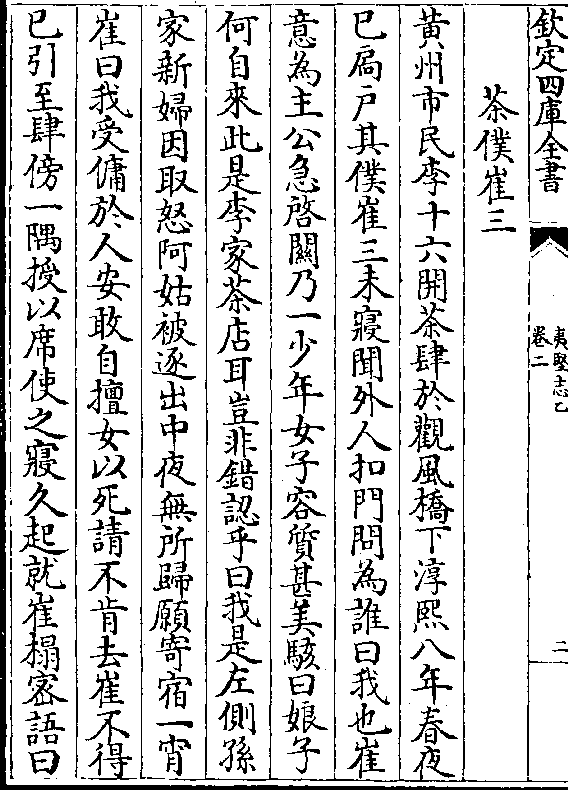 欽定四庫全書
夷堅志乙
卷二
二
茶僕崔三
黃州市民李十六開茶肆於觀風橋下淳熙八年春夜
已扃戸其僕崔三未寢聞外人扣門問為誰曰我也崔
意為主公急啓關乃一少年女子容質甚美駭曰娘子
何自來此是李家茶店耳豈非錯認乎曰我是左側孫
家新婦因取怒阿姑被逐出中夜無所歸願寄宿一宵
崔曰我受傭於人安敢自擅女以死請不肯去崔不得
已引至肆傍一隅授以席使之寢久起就崔榻密語曰